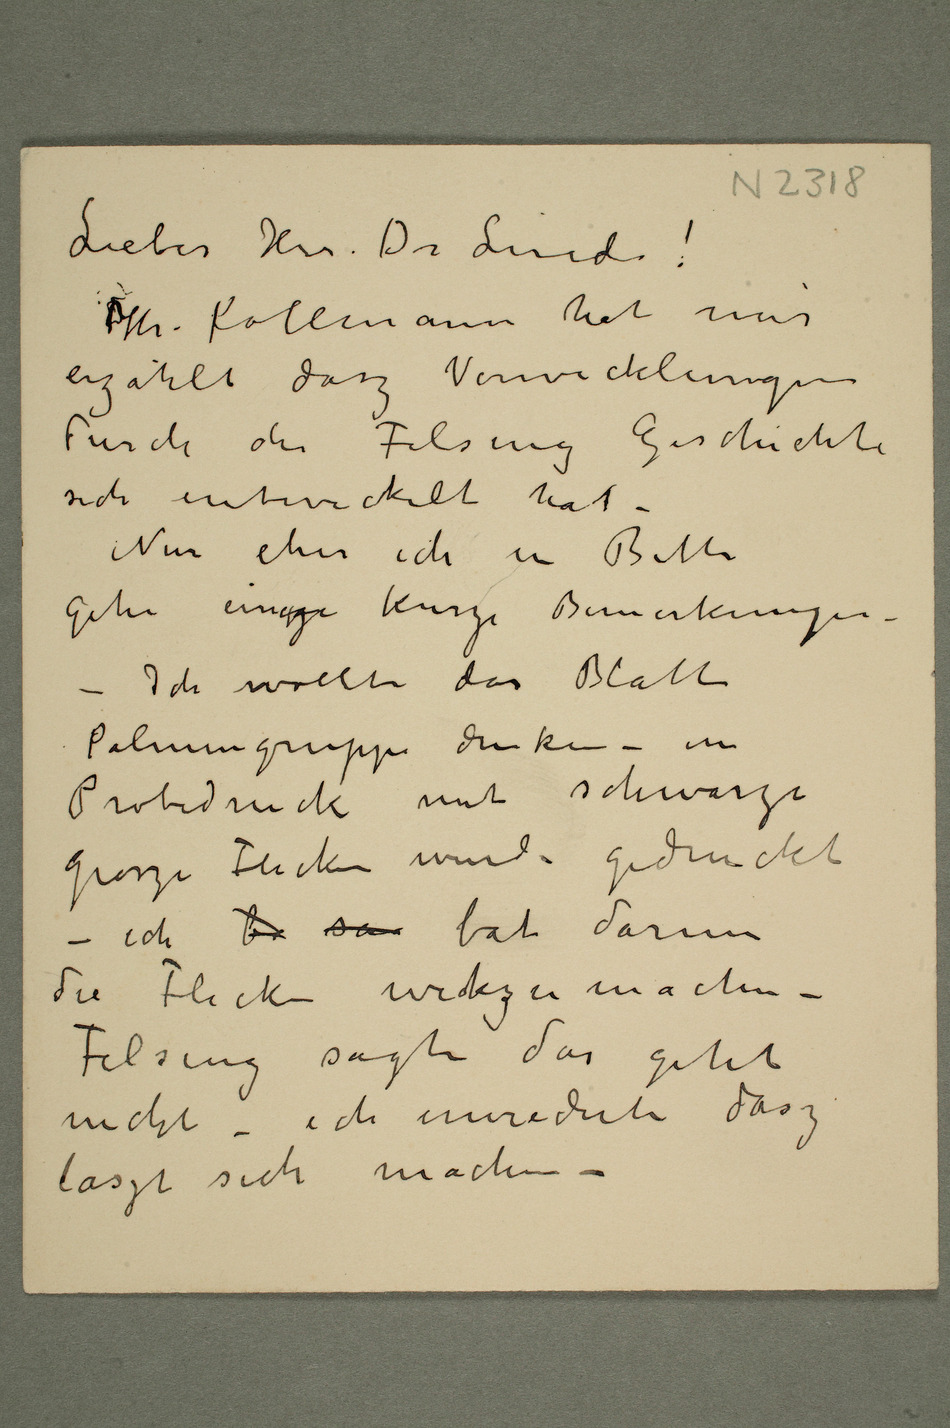 N 2318
Lieber Herr. Dr Linde!
Hr. Kollmann hat mir
erzählt dasz Verwicklungen
durch die Felsing Geschichte
sich entwickelt hat –
Nur eher ich in Bette
gehe einige kurze Bemerkungen –
– Ich wollte das Blatt
Palmengruppe druken – ein
Probedruck mit schwarze
grosze Flicken wurde gedruckt
– ich bat darum
die Flicken wekzumachen –
Felsing sagte das geht
nicht – ich erwiederte dasz
laszt sich machen –